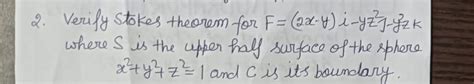 2. Verify Stokes theorem for F = (2x-y) i - yz² j - y²z k
where S is the upper half surface of the sphere
x²+y²+z²=1 and C is its boundary.